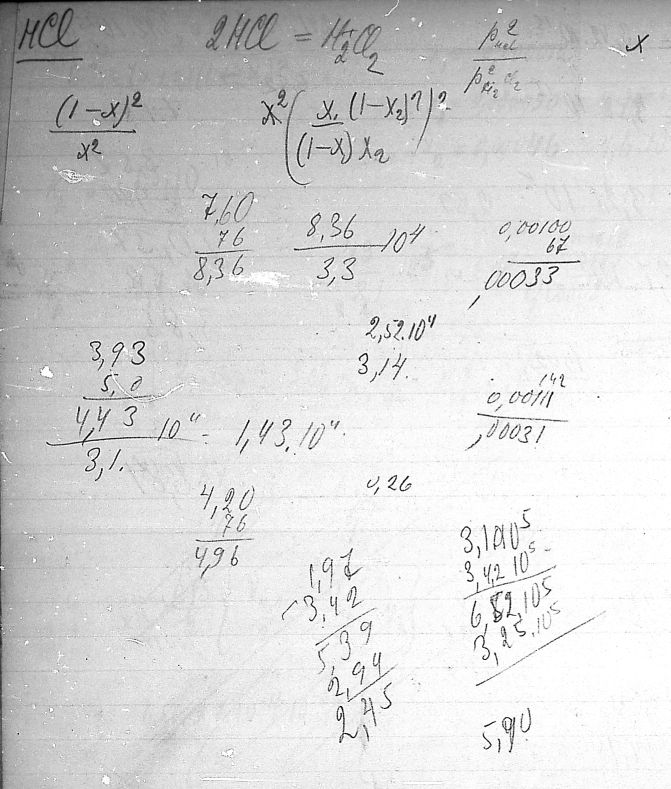 HCl 2HCl = H2Cl2 x
(1-x)^2 / x^2
x^2 ( x1 (1-x2)^2 / (1-x) x2 )^2
7,60
76
8,36
8,36 / 3,3 10^4
0,00100
67
,00033
2,52.10^4
3,14.
3,93
5,0
4,43 / 3,1. 10^4 = 1,43.10^4.
142
,00031
0,26
4,20
76
4,96
1,97
3,42
5,39
2,94
2,45
3,10 10^5
3,42 10^5
6,52,10^5
3,25.10^5
5,90